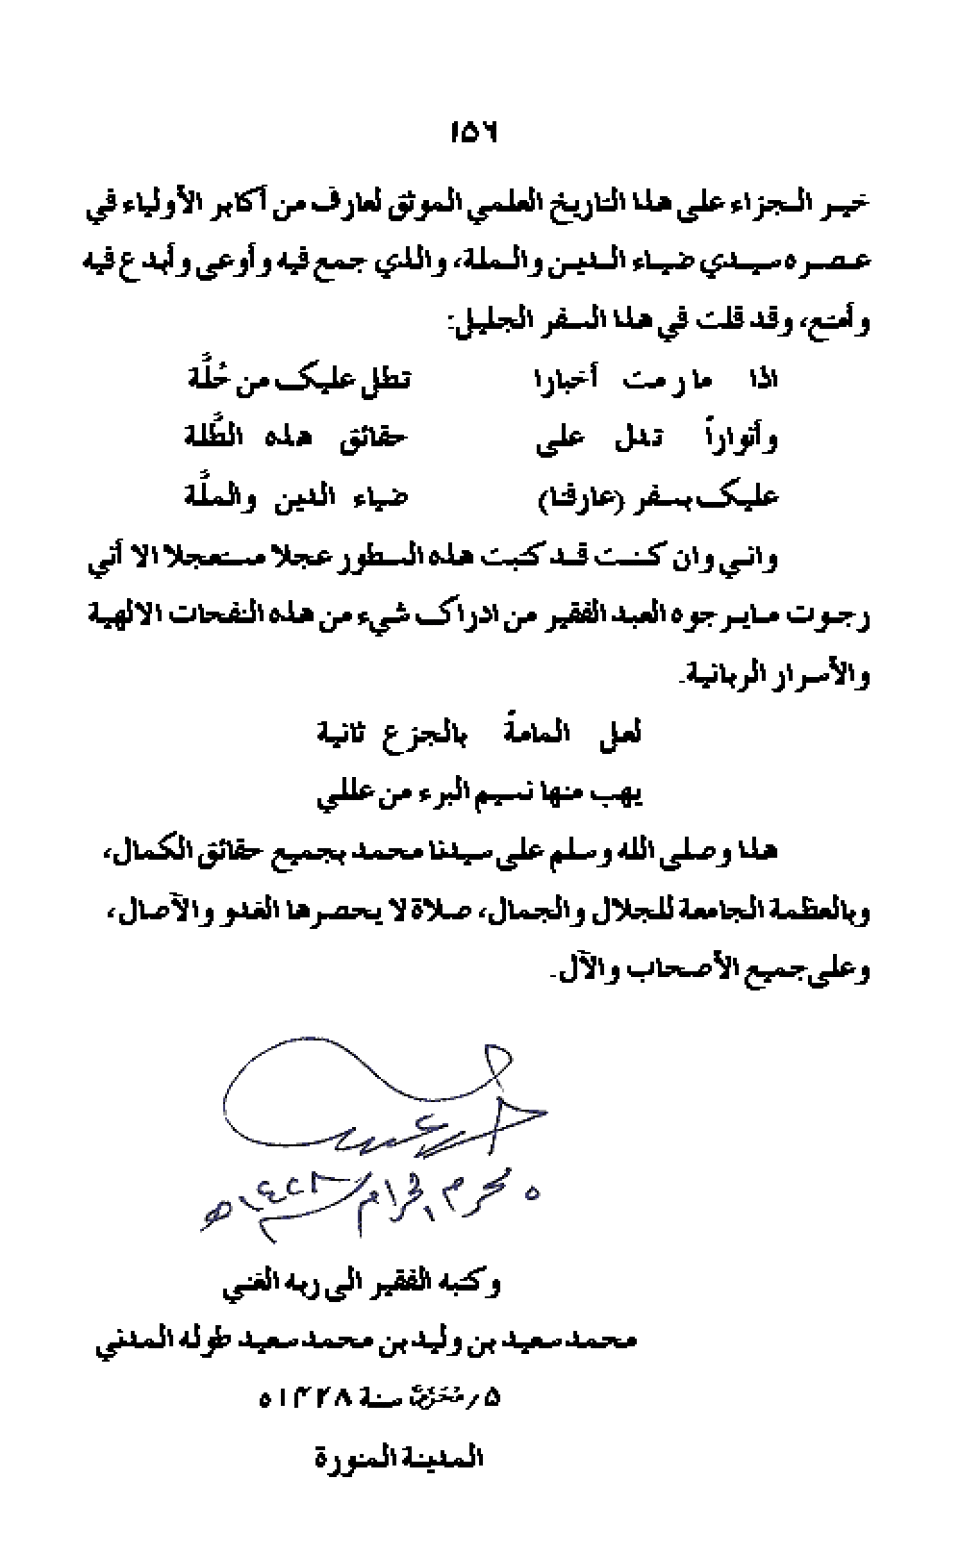 ١٥٦
خير الجزاء على هذا التاريخ العلمي الموثق لعارف من أكابر الأولياء في
عصره سيدي ضياء الدين والملة، والذي جمع فيه وأوعى وأبدع فيه
وأمتع، وقد قلت في هذا السفر الجليل:
اذا ما رمت أخبارا تطل عليك من حُلَّة
وأنواراً تدل على حقائق هذه الطُّلة
عليك بسفر (عارفنا) ضياء الدين والملَّة
واني وان كنت قد كتبت هذه السطور عجلا مستعجلا الا أني
رجوت مايرجوه العبد الفقير من ادراك شيء من هذه النفحات الالهية
والأسرار الربانية.
لعل المامةً بالجزع ثانية
يهب منها نسيم البرء من عللي
هذا وصلى الله وسلم على سيدنا محمد بجميع حقائق الكمال،
وبالعظمة الجامعة للجلال والجمال، صلاة لا يحصرها الغدو والآصال،
وعلى جميع الأصحاب والآل.
٥ محرم الحرام ١٤٢٨ه
وكتبه الفقير الى ربه الغني
محمد سعيد بن وليد بن محمد سعيد طوله المدني
٥/محرم سنة ١٤٢٨ه
المدينة المنورة